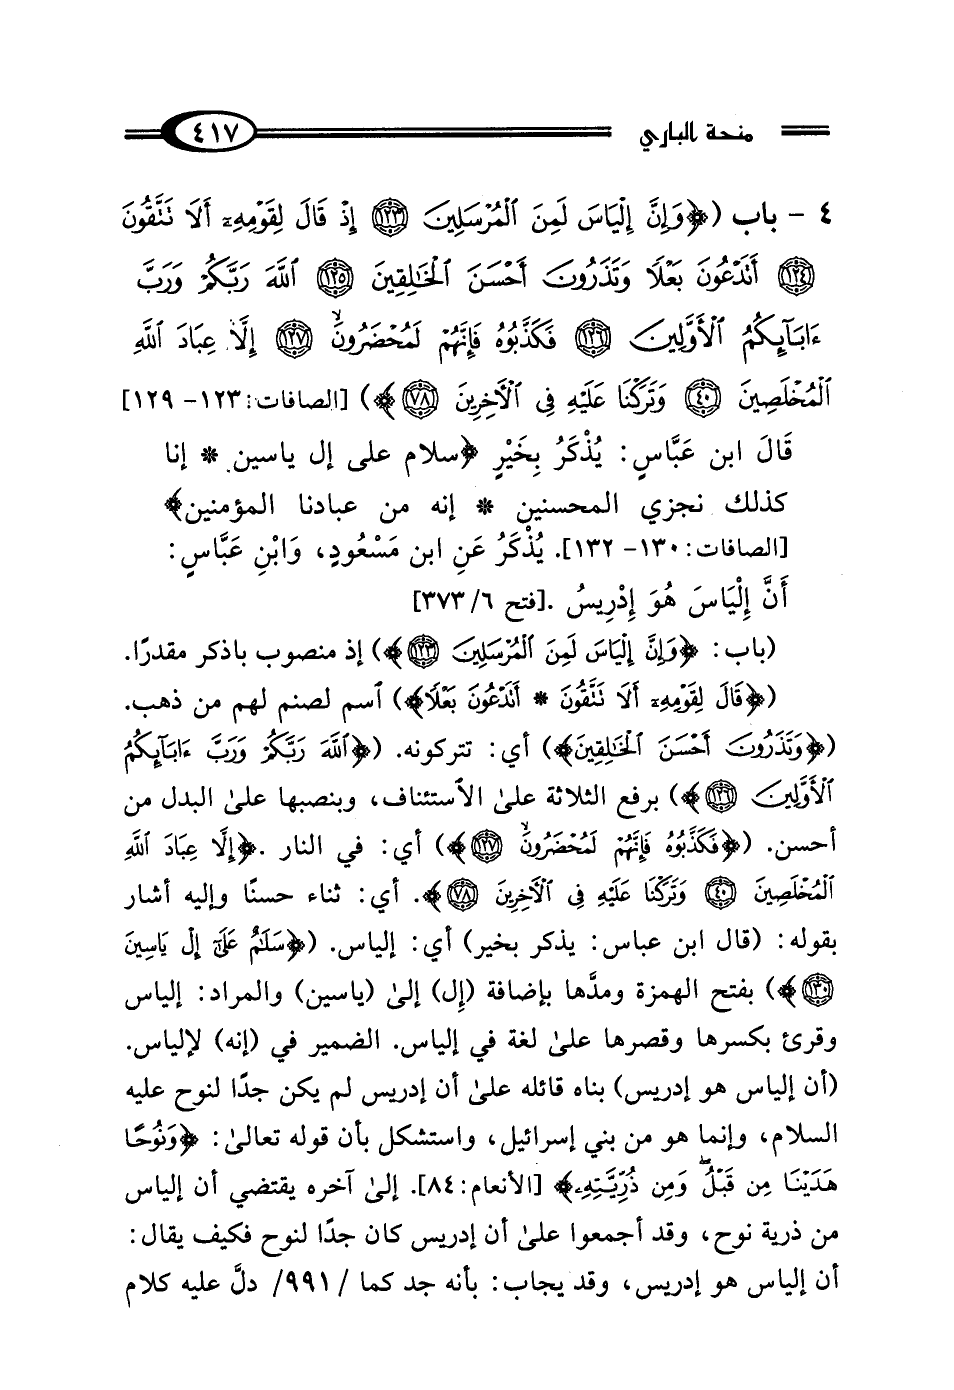 منحة الباري ٤١٧
٤ - باب (﴿وَإِنَّ إِلْيَاسَ لَمِنَ ٱلْمُرْسَلِينَ ١٢٣ إِذْ قَالَ لِقَوْمِهِۦٓ أَلَا تَتَّقُونَ
١٢٤ أَتَدْعُونَ بَعْلًا وَتَذَرُونَ أَحْسَنَ ٱلْخَٰلِقِينَ ١٢٥ ٱللَّهَ رَبَّكُمْ وَرَبَّ
ءَابَآئِكُمُ ٱلْأَوَّلِينَ ١٢٦ فَكَذَّبُوهُ فَإِنَّهُمْ لَمُحْضَرُونَۙ ١٢٧ إِلَّا عِبَادَ ٱللَّهِ
ٱلْمُخْلَصِينَ ٤٠ وَتَرَكْنَا عَلَيْهِ فِى ٱلْآخِرِينَ ٧٨﴾) [الصافات: ١٢٣- ١٢٩]
قَالَ ابن عَبَّاسٍ: يُذْكَرُ بِخَيْرٍ ﴿سلام على إل ياسين * إنا
كذلك نجزي المحسنين * إنه من عبادنا المؤمنين﴾
[الصافات: ١٣٠- ١٣٢]. يُذْكَرُ عَنِ ابن مَسْعُودٍ، وَابْنِ عَبَّاسٍ:
أَنَّ إِلْيَاسَ هُوَ إِدْرِيسُ .[فتح ٦/ ٣٧٣]
(باب: ﴿وَإِنَّ إِلْيَاسَ لَمِنَ ٱلْمُرْسَلِينَ ١٢٣﴾) إذ منصوب باذكر مقدرًا.
(﴿قَالَ لِقَوْمِهِۦٓ أَلَا تَتَّقُونَ * أَتَدْعُونَ بَعْلًا﴾) ٱسم لصنم لهم من ذهب.
(﴿وَتَذَرُونَ أَحْسَنَ ٱلْخَٰلِقِينَ﴾) أي: تتركونه. (﴿ٱللَّهَ رَبَّكُمْ وَرَبَّ ءَابَآئِكُمُ
ٱلْأَوَّلِينَ ١٢٦﴾) برفع الثلاثة علىٰ الٱستئناف، وبنصبها علىٰ البدل من
أحسن. (﴿فَكَذَّبُوهُ فَإِنَّهُمْ لَمُحْضَرُونَۙ ١٢٧﴾) أي: في النار .﴿إِلَّا عِبَادَ ٱللَّهِ
ٱلْمُخْلَصِينَ ٤٠ وَتَرَكْنَا عَلَيْهِ فِى ٱلْآخِرِينَ ٧٨﴾. أي: ثناء حسنًا وإليه أشار
بقوله: (قال ابن عباس: يذكر بخير) أي: إلياس. (﴿سَلَٰمٌ عَلَىٰٓ إِلْ يَاسِينَ
١٣٠﴾) بفتح الهمزة ومدَّها بإضافة (إل) إلىٰ (ياسين) والمراد: إلياس
وقرئ بكسرها وقصرها علىٰ لغة في إلياس. الضمير في (إنه) لإلياس.
(أن إلياس هو إدريس) بناه قائله علىٰ أن إدريس لم يكن جدًا لنوح عليه
السلام، وإنما هو من بني إسرائيل، واستشكل بأن قوله تعالىٰ: ﴿وَنُوحًا
هَدَيْنَا مِن قَبْلُۖ وَمِن ذُرِّيَّتِهِۦ﴾ [الأنعام: ٨٤]. إلىٰ آخره يقتضي أن إلياس
من ذرية نوح، وقد أجمعوا علىٰ أن إدريس كان جدًا لنوح فكيف يقال:
أن إلياس هو إدريس، وقد يجاب: بأنه جد كما /٩٩١/ دلَّ عليه كلام